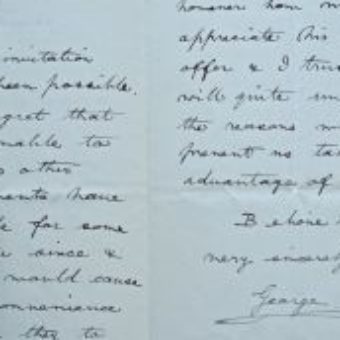 invitation
been possible.
gret that
unable to
other
have
for some
since &
would cause
to
however how
appreciate his
offer & I trust
will quite
the reasons
prevent us
advantage of
Believe
very sincerely
George